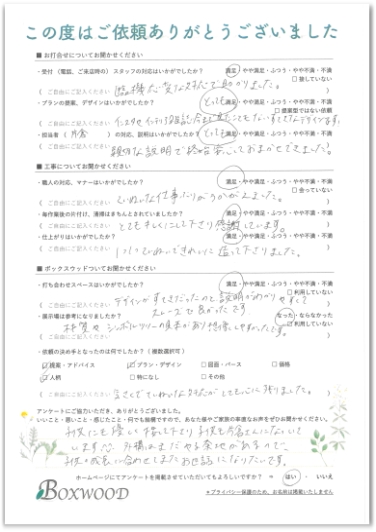 この度はご依頼ありがとうございました
■ お打合せについてお聞かせください
・受付（電話、ご来店時の）スタッフの対応はいかがでしたか？ 満足・やや満足・ふつう・やや不満・不満
□ 接していない
（ ご自由にご記入ください
・プランの提案、デザインはいかがでしたか？ とっても 満足・やや満足・ふつう・やや不満・不満
□ 提案型ではない依頼
（ ご自由にご記入ください
・担当者（ 片倉 ）の対応、説明はいかがでしたか？ とっても 満足・やや満足・ふつう・やや不満・不満
（ ご自由にご記入ください 親切な説明で終始安心しておまかせできました。
■ 工事についてお聞かせください
・職人の対応、マナーはいかがでしたか？ 満足・やや満足・ふつう・やや不満・不満
□ 会っていない
（ ご自由にご記入ください ていねいな仕事ぶりがうかがえました。
・毎作業後の片付け、清掃はきちんとされていましたか？ 満足・やや満足・ふつう・やや不満・不満
（ ご自由にご記入ください とてもキレイにして下さり感謝しています。
・仕上がりはいかがでしたか？ 満足・やや満足・ふつう・やや不満・不満
（ ご自由にご記入ください 1つ1つていねいできれいに造って下さりました。
■ ボックスウッドついてお聞かせください
・打ち合わせスペースはいかがでしたか？ 満足・やや満足・ふつう・やや不満・不満
□ 利用していない
（ ご自由にご記入ください デザインがすてきだったのと説明がわかりやすくて
スムーズで良かったです。
・展示場は参考になりましたか？ なった・ならなかった
□ 利用していない
（ ご自由にご記入ください 材質やシンボルツリーの見本があり想像しやすかったです。
・依頼の決め手となったのは何でしたか？（ 複数選択可 ）
☑ 提案・アドバイス ☑ プラン・デザイン □ 図面・パース □ 価格
☑ 人柄 □ 特になし □ その他
（ ご自由にご記入ください
アンケートにご協力いただき、ありがとうございました。
・いいこと・悪いこと・感じたこと・何でも結構ですので、あなた様やご家族の率直なお声をぜひお聞かせください。
子供にも優しく接して下さり子供も
います。外構はまだやる余地があるので、
子供の成長に合わせてまたお世話になりたいです。
ホームページにてアンケートを掲載させていただいてもよろしいですか？ → はい ・ いいえ
＊プライバシー保護のため、お名前は掲載いたしません
BOXWOOD